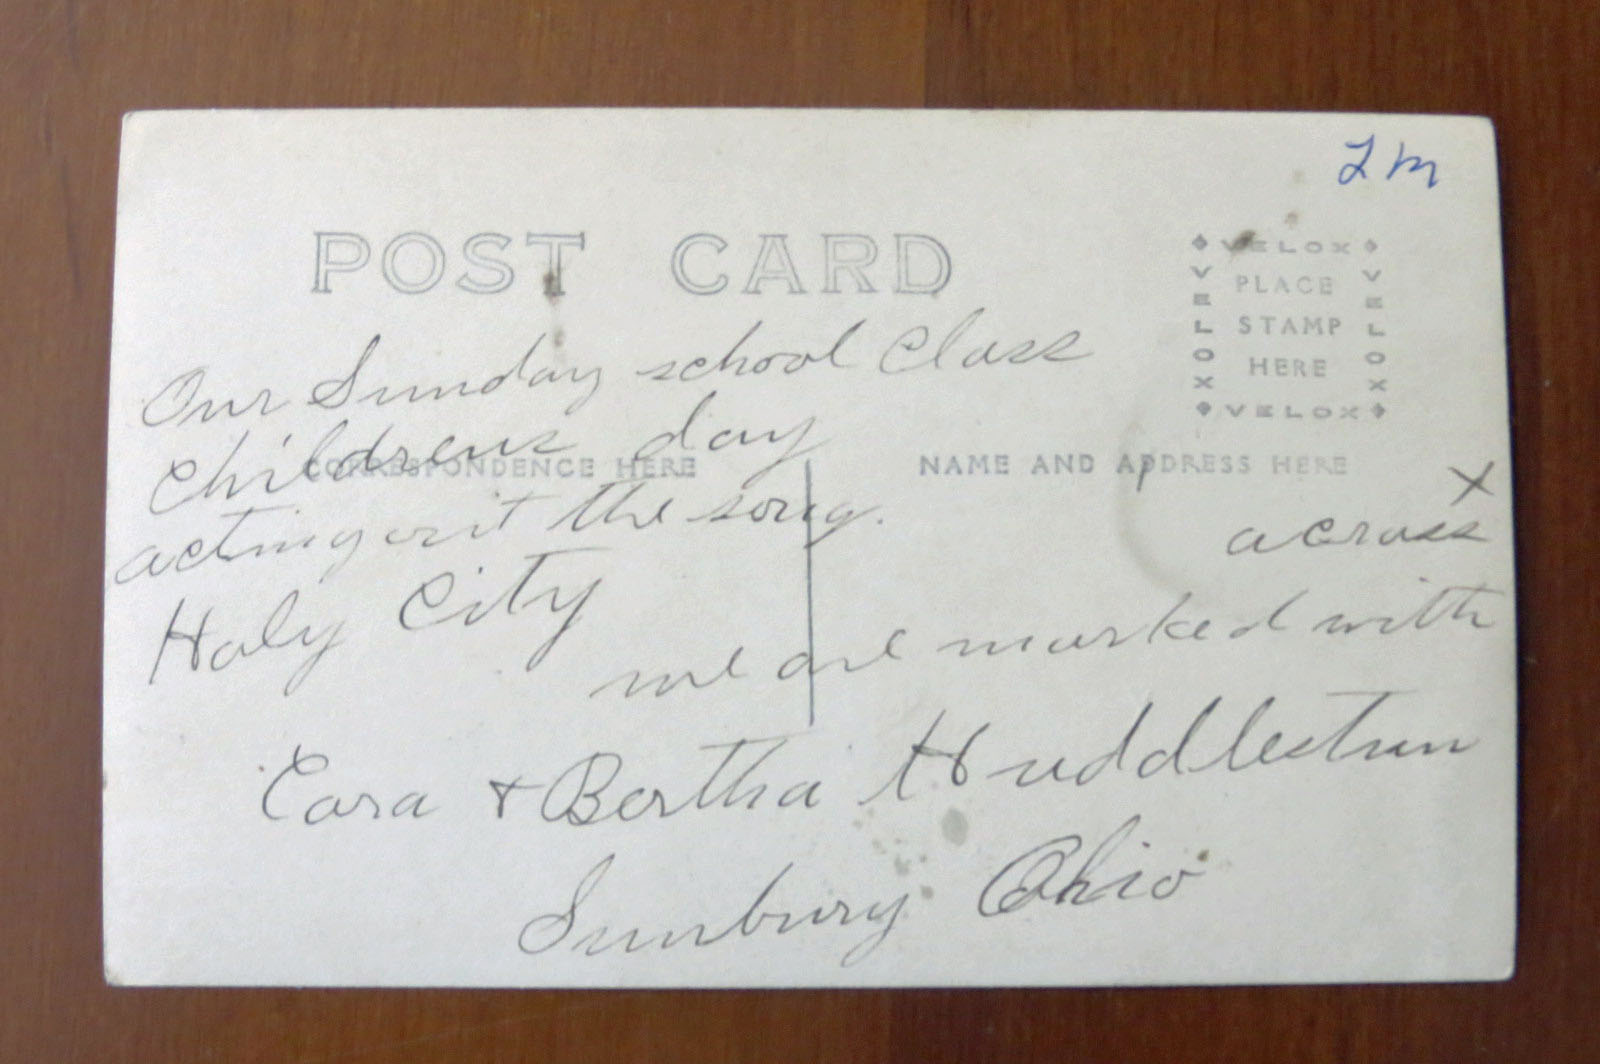 2 m
POST CARD
VELOX
VELOX
VELOX
PLACE
STAMP
HERE
VELOX
Our Sunday school Class
Childrens day
CORRESPONDENCE HERE
NAME AND ADDRESS HERE
acting out the song.
Holy City
X
across
we are marked with
Cora + Bertha Huddlestun
Sunbury Ohio